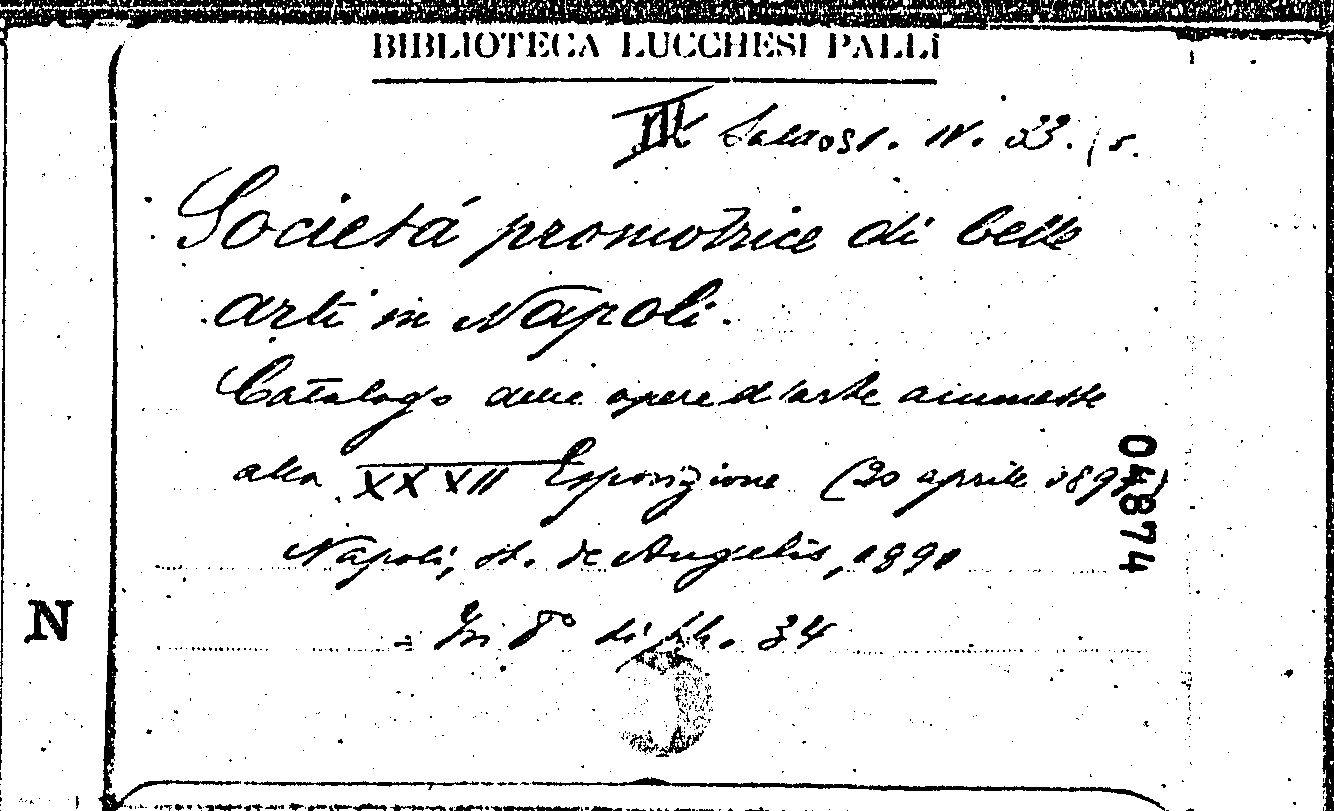 BIBLIOTECA LUCCHESI PALLI
III Sala 31. IV. 33.
Societá promotrice di belle
arti in Napoli.
Catalogo delle opere d'arte ammesse
alla XXXVII Esposizione (20 aprile
04874
Napoli, st. de Angelis, 1890
N
In 8° di pp. 34